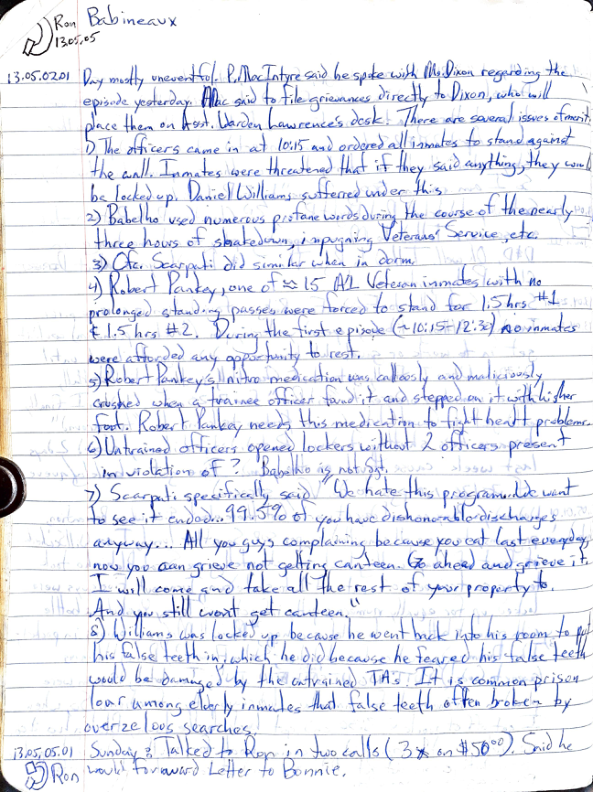 Ron Babineaux
13.05.05
13.05.0201 Day mostly uneventful. P. MacIntyre said he spoke with Ms. Dixon regarding the
episode yesterday. Mac said to file grievances directly to Dixon, who will
place them on Asst. Warden Lawrence's desk. There are several issues of merit.
1) The officers came in at 10:15 and ordered all inmates to stand against
the wall. Inmates were threatened that if they said anything, they would
be locked up. Daniel Williams sufferred under this.
2) Babelho used numerous profane words during the course of the nearly
three hours of shakedown, impugning Veterans' Service, etc.
3) Ofcr. Scarpati did similar when in dorm.
4) Robert Pankey, one of ≈ 15 A1 Veteran inmates with no
prolonged standing passes were forced to stand for 1.5 hrs. #1
& 1.5 hrs. #2. During the first episode (~10:15-12:30) no inmates
were afforded any opportunity to rest.
5) Robert Pankey's nitro medication was callously and maliciously
crushed when a trainee officer found it and stepped on it with his/her
foot. Robert Pankey needs this medication to fight heart problems.
6) Untrained officers opened lockers without 2 officers present
in violation of ? Babelho is not Sgt.
7) Scarpati specifically said "We hate this program. We want
to see it ended... 99.5% of you have dishonorable discharges
anyway... All you guys complaining because you eat last everyday,
now you can grieve not getting canteen. Go ahead and grieve it.
I will come and take all the rest of your property to.
And you still won't get canteen."
8) Williams was locked up because he went back into his room to put
his false teeth in, which he did because he feared his false teeth
would be damaged by the untrained TA's. It is common prison
lour among elderly inmates that false teeth often broken by
overzelous searches.
13.05.05.01 Sunday: Talked to Ron in two calls (3x on $50⁰⁰). Said he
Ron would forward Letter to Bonnie.